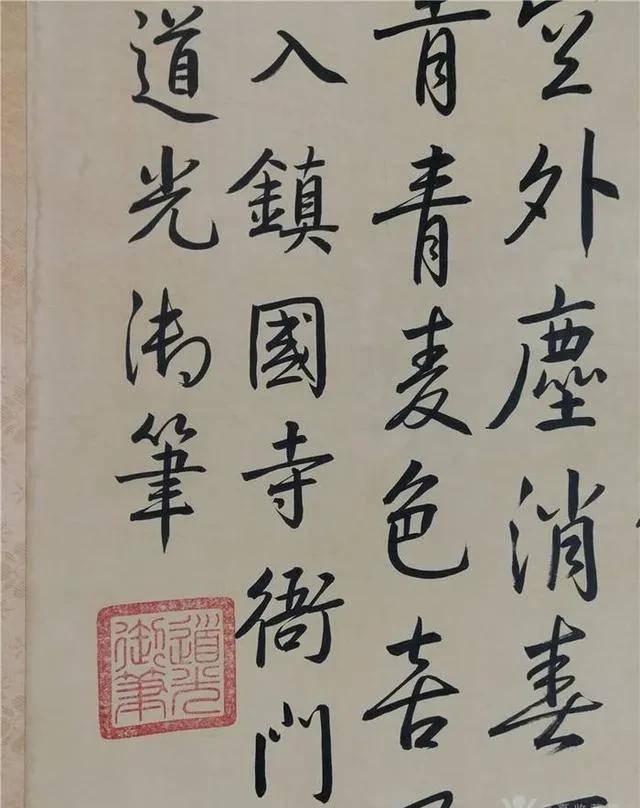 外塵消春
青青麦色喜
入鎮國寺衙門
道光御筆
道光
御筆